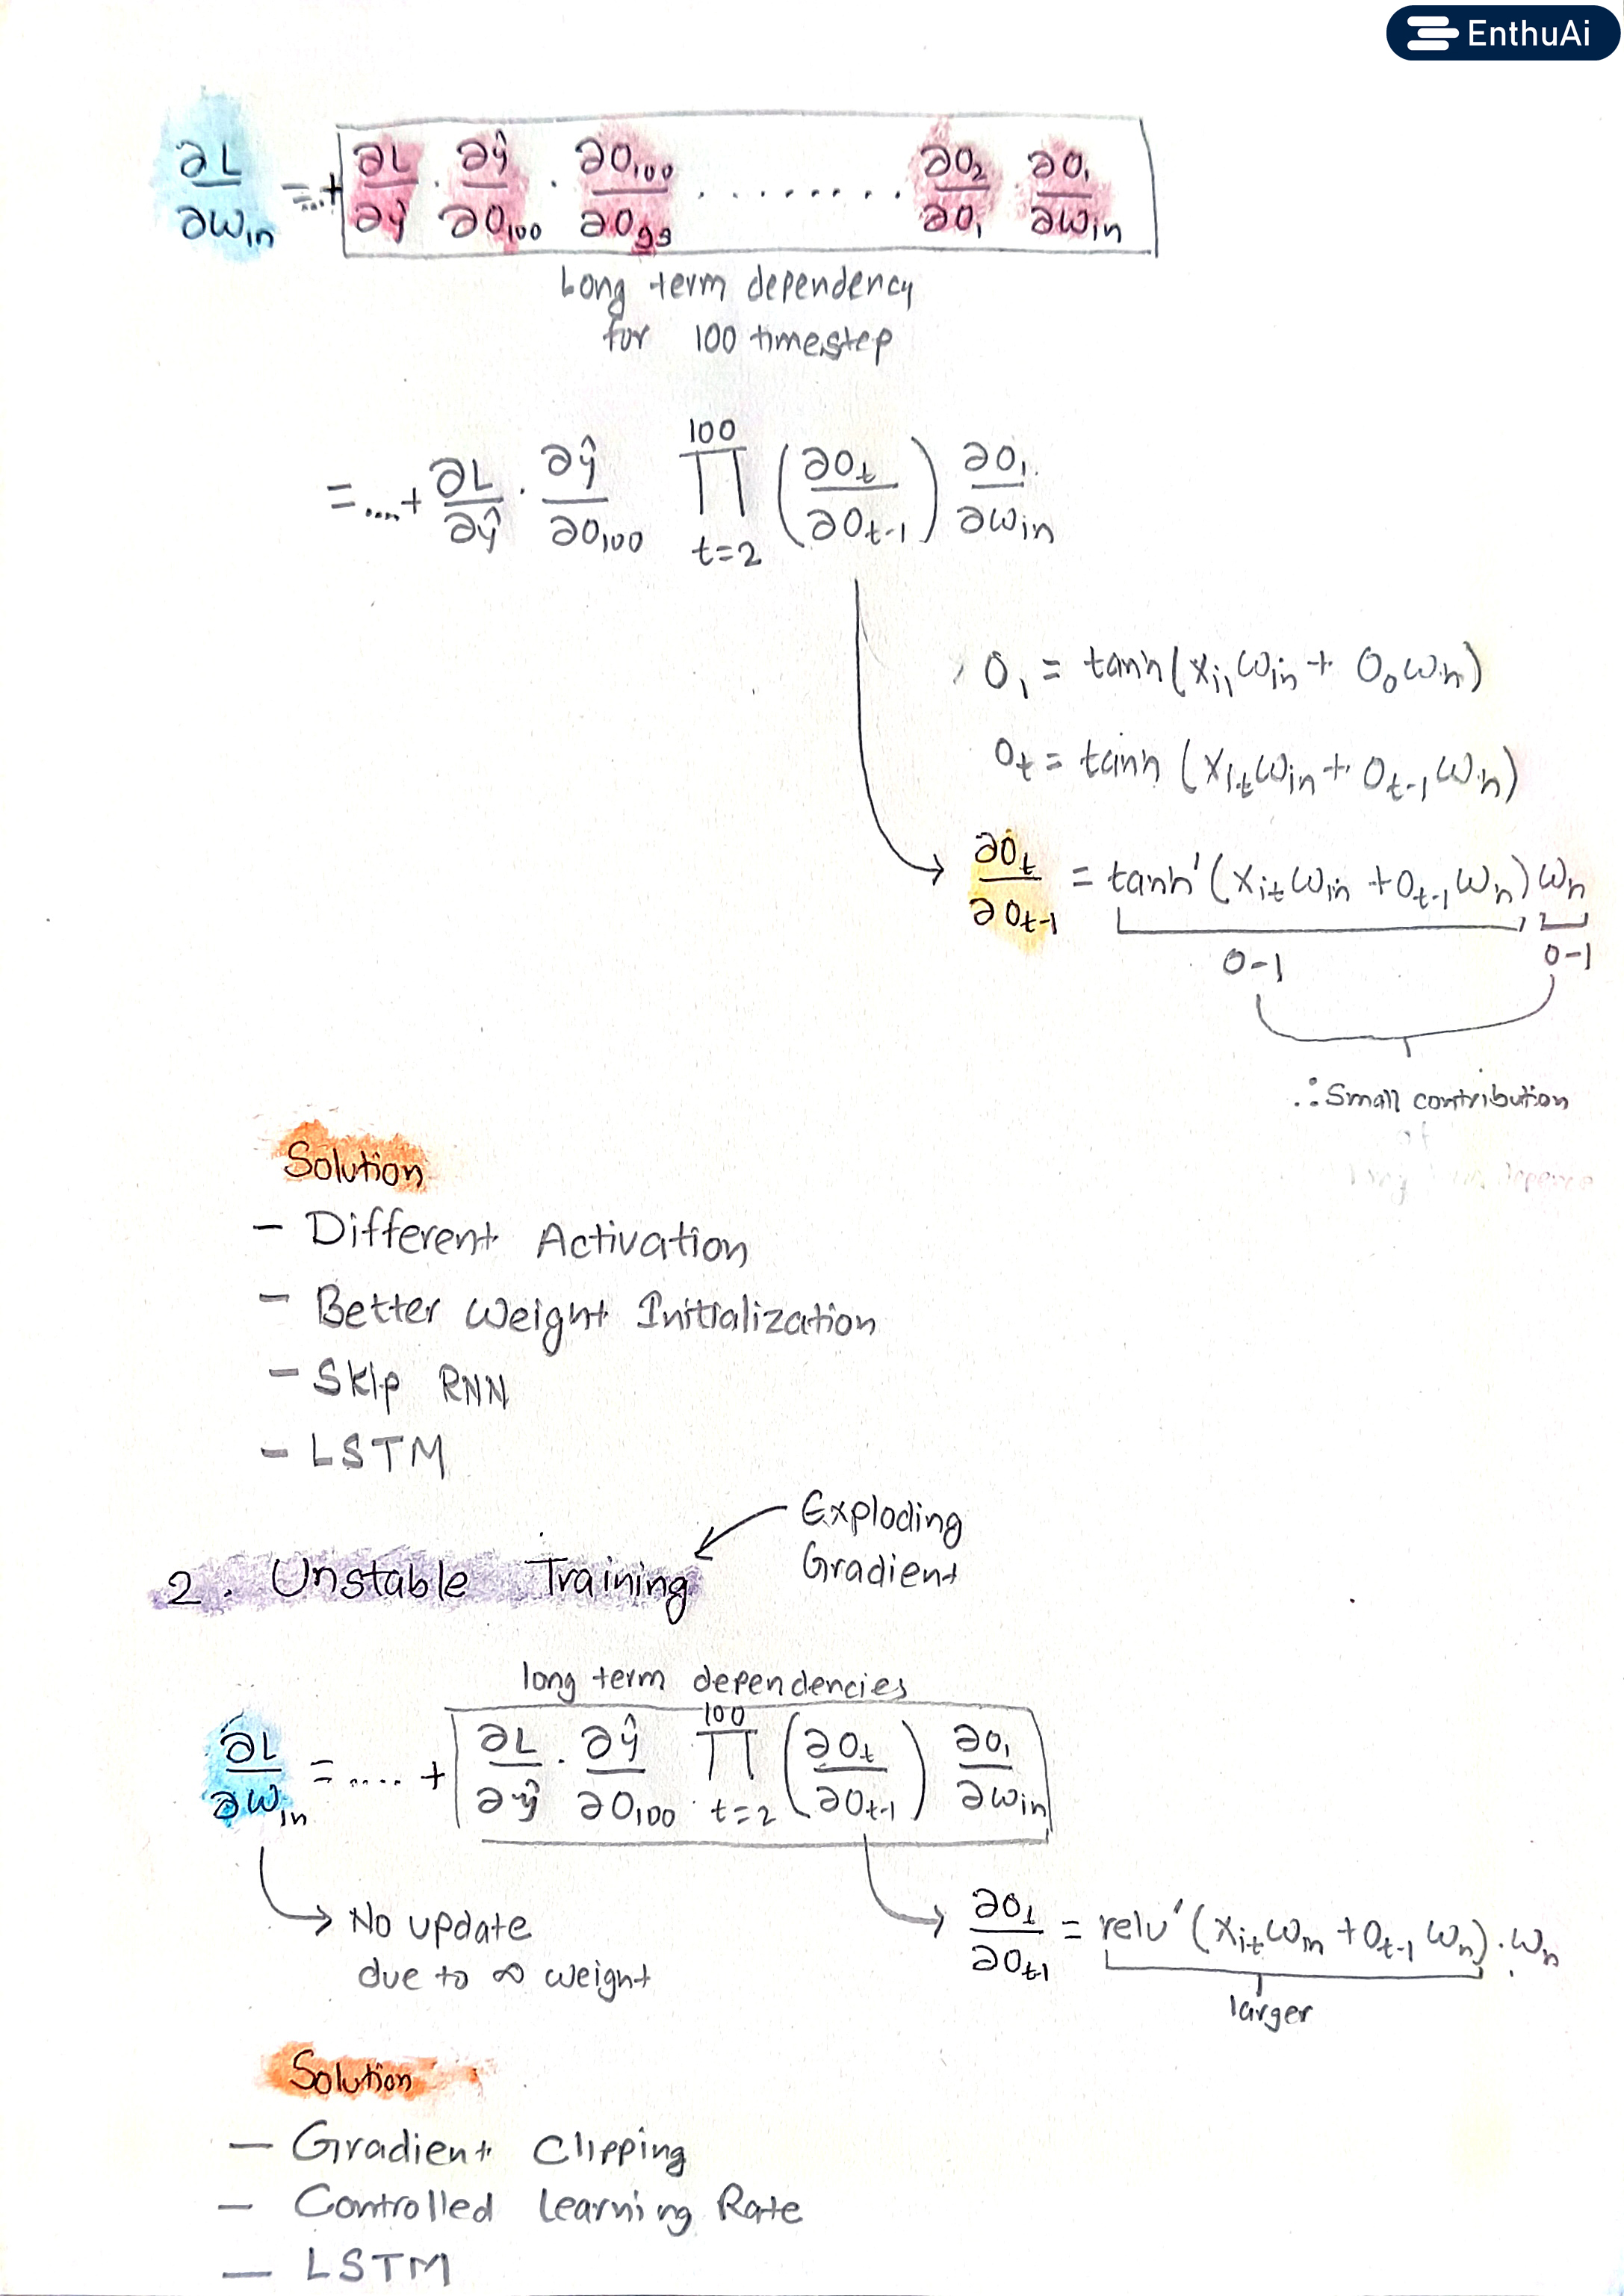 EnthuAi
∂L/∂ω_in = ...+ ∂L/∂ŷ · ∂ŷ/∂O_100 · ∂O_100/∂O_99 ......... ∂O_2/∂O_1 ∂O_1/∂ω_in
Long term dependency
for 100 timestep
= ....+ ∂L/∂ŷ · ∂ŷ/∂O_100 ∏_{t=2}^{100} (∂O_t/∂O_t-1) ∂O_1/∂ω_in
O_1 = tanh(x_i1 ω_in + O_0 ω_h)
O_t = tanh (x_it ω_in + O_t-1 ω_h)
∂O_t/∂O_t-1 = tanh'(x_it ω_in + O_t-1 ω_h) ω_h
0-1 0-1
∴ Small contribution
of
Solution
- Different Activation
- Better Weight Initialization
- Skip RNN
- LSTM
Exploding
Gradient
2. Unstable Training
long term dependencies
∂L/∂ω_in = ..... + ∂L/∂ŷ · ∂ŷ/∂O_100 ∏_{t=2}^{100} (∂O_t/∂O_t-1) ∂O_1/∂ω_in
No update
due to ∞ weight
∂O_t/∂O_t-1 = relu'(x_it ω_in + O_t-1 ω_h) · ω_h
larger
Solution
- Gradient Clipping
- Controlled Learning Rate
- LSTM